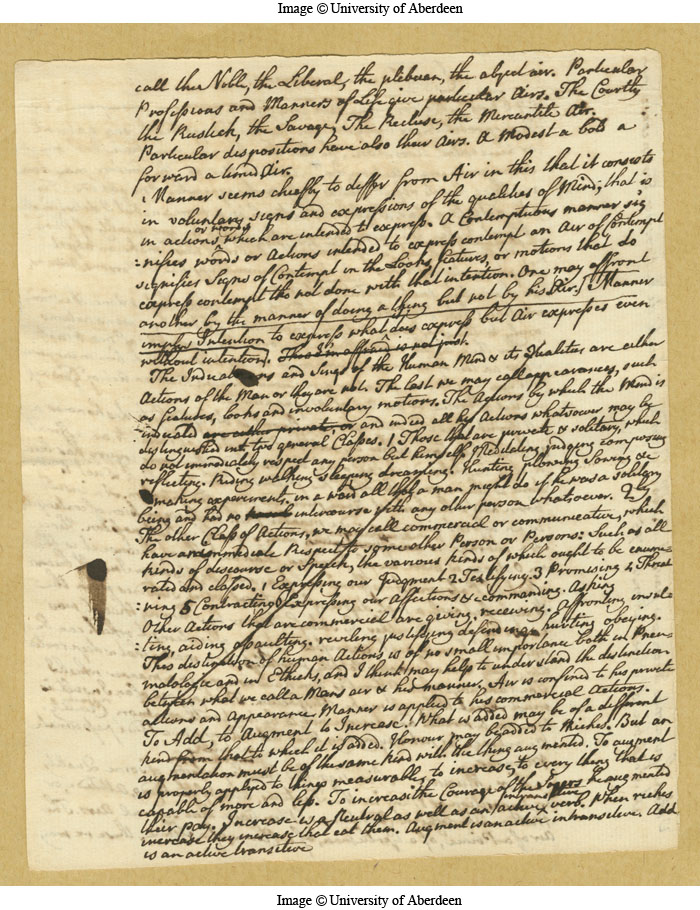 Image © University of Aberdeen
call the Noble, the Liberal, the plebean, the abject air. Particular
Professions and Manners of Life give particular Airs. The Courtly
the Rustick, the Savage, The Recluse, the Mercantile Air.
Particular dispositions have also their Airs. A Modest a bold a
forward a timid Air.
Manner seems chiefly to differ from Air in this that it consists
in voluntary signs and expressions of the qualities of Mind; that is
in actions or words which are intended to express. A Contemptuous manner sig
=nifies words or Actions intended to express contempt an Air of Contempt
signifies Signs of Contempt in the Looks, features, or motions that do
express contempt tho not done with that intention. One may affront
another by the manner of doing a thing but not by his Air. Manner
implys Intention to express what does express but Air expresses even
without intention. This I am affraid is not just.
The Indications and Signs of the Human Mind & its Qualities are either
Actions of the Man or they are not. The last we may call appearances, such
as features, looks and involuntary motions. The Actions by which the Mind is
indicated are either private, or and indeed all his Actions whatsoever may be
distinguished into two general Classes. 1 Those that are private & solitary, which
do not immediately respect any person but himself. Meditating judging composing
reflecting. Riding walking sleeping dreaming. Hunting plowing Sowing &c
making experiments, in a word all that a man might do if he was a solitary
being and had no intercourse with any other person whatsoever. 2dly
The other Class of Actions, we may call commercial or communicative, which
have an immediate Respect to some other Person or Persons: Such as all
kinds of discourse or Speech, the various kinds of which ought to be enume
rated and classed. 1 Expressing our Judgment 2 Testifying 3 Promising 4 Threat
=ning 5 Contracting Expressing our Affections & commanding. Asking
Other Actions that are commercial are giving receiving. Affronting insul
=ting, aiding assaulting. reviling justifying defending hurting obeying.
This distinction of human Actions is of no small importance both in Pneu
matologie and in Ethicks, and I think may help to understand the distinction
between what we call a Mans air & his manner. Air is confined to his private
actions and appearance. Manner is applied to his commercial Actions.
To Add, to Augment to Increase. What is added may be of a different
kind from that to which it is added. Honour may be added to Riches. But an
augmentation must be of the same kind with the thing augmented. To augment
is properly applied to things measurable, to increase, to every thing that is
capable of more and less. To increase the Courage of the augmented
their pay. Increase is a Neutral as well as an active verb. When riches
increase they increase that eat them. Augment is an active intransitive. Add
is an active transitive
Image © University of Aberdeen